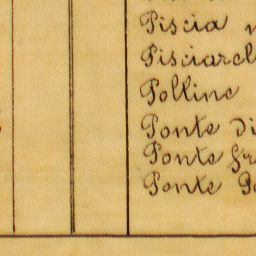 Piscia
Pisciarel
Polline
Ponte di
Ponte
Ponte